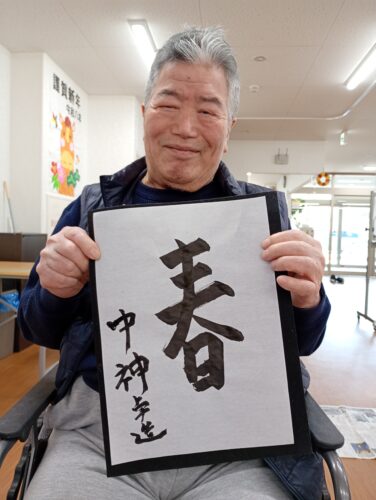 謹賀新年
春
中神 造